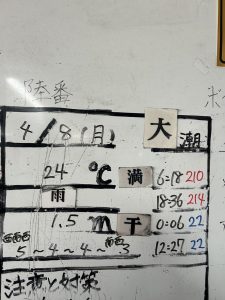 陸番
4/8(月) 大潮
24 ℃ 満 6:18 210
雨 18:36 214
1.5 m 干 0:06 22
5～4～4～3 12:27 22
注意と対策